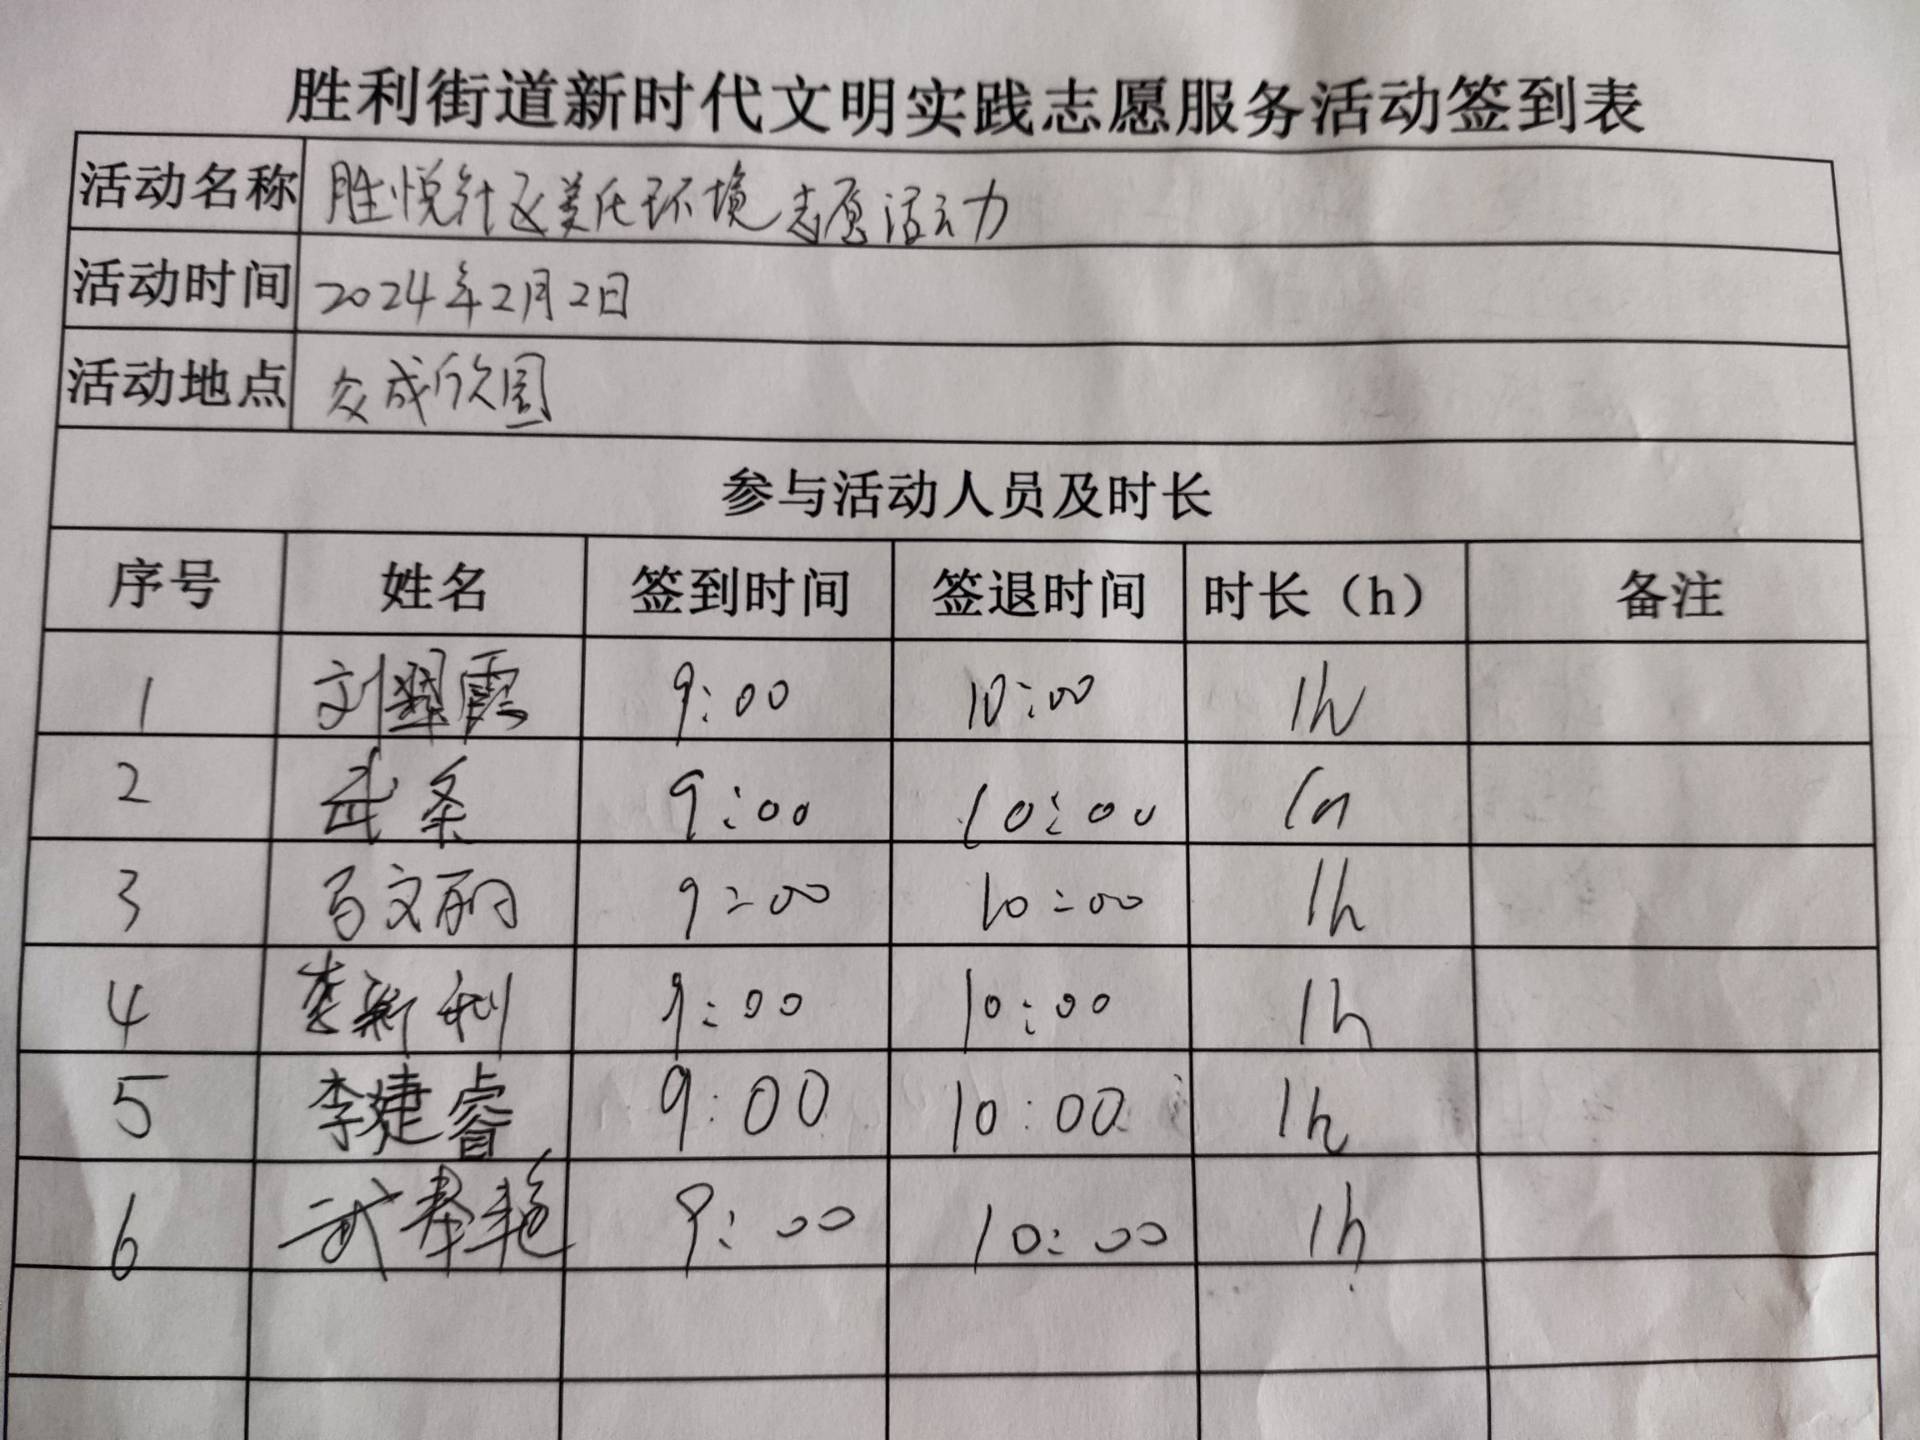 胜利街道新时代文明实践志愿服务活动签到表
活动名称 胜悦社区美化环境志愿活动
活动时间 2024年2月2日
活动地点 众成欣园
参与活动人员及时长
序号 姓名 签到时间 签退时间 时长（h） 备注
1 刘翠霞 9:00 10:00 1h
2 武条 9:00 10:00 1h
3 马文丽 9:00 10:00 1h
4 李新利 9:00 10:00 1h
5 李婕睿 9:00 10:00 1h
6 武春艳 9:00 10:00 1h